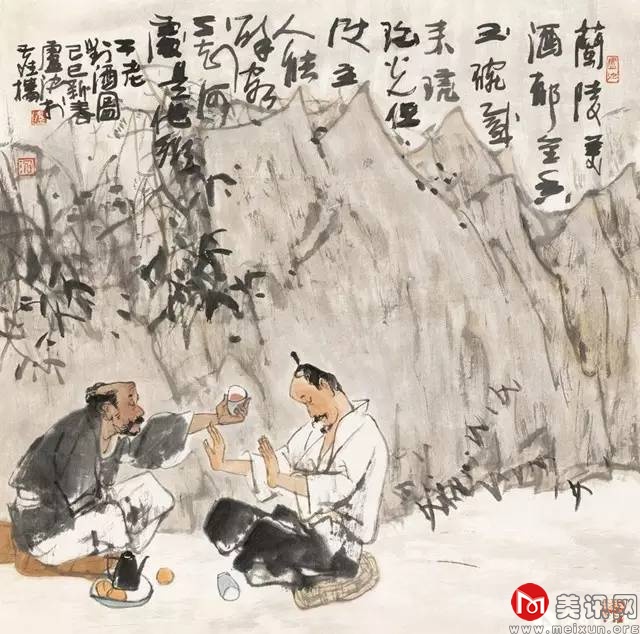 蘭陵美
酒郁金香
玉碗盛
来琥
珀光但
使主
人能
醉客
不知何
處是他鄉
二老
對酒圖
己巳新春
盧沉於
美讯网
www.meixun.org